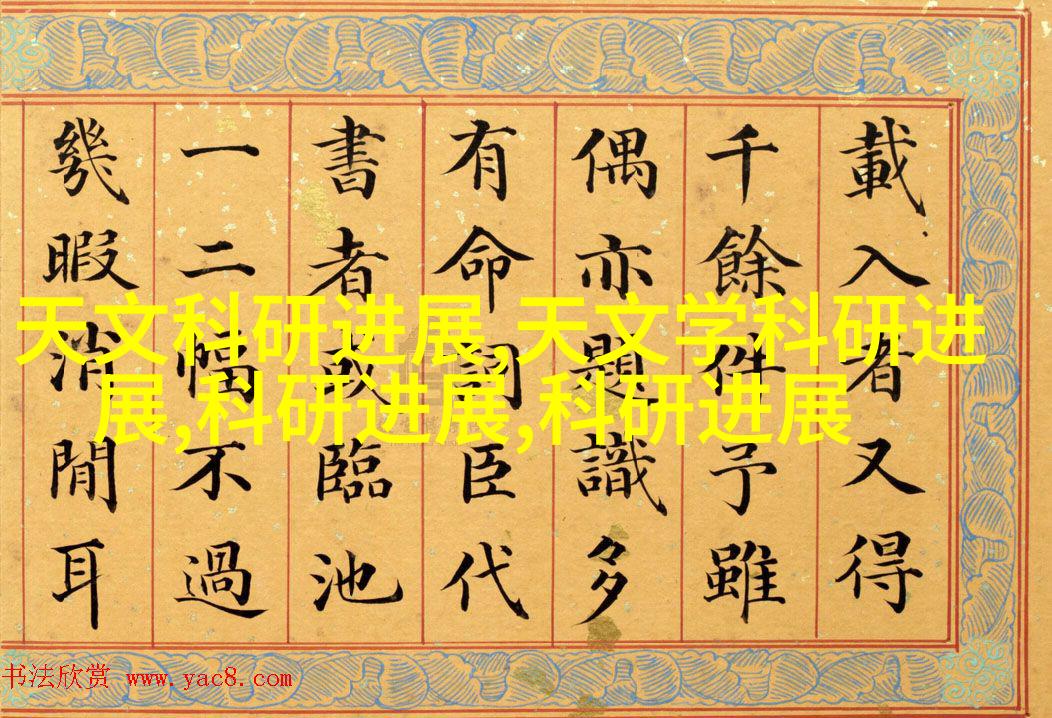 載入者又得
千餘件予雖
偶亦題識多
有命詞臣代
書者或臨池
一二幅不過
幾暇消閒耳
天文科研进展,天文学科研进
展,科研进展,科研进展
书法欣赏 www.yac8.com